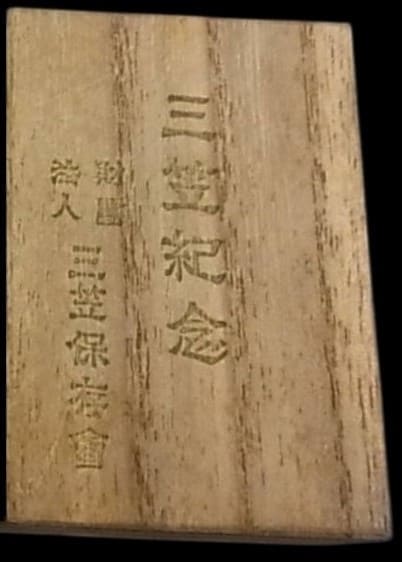 三笠紀念
財團法人三笠保存會